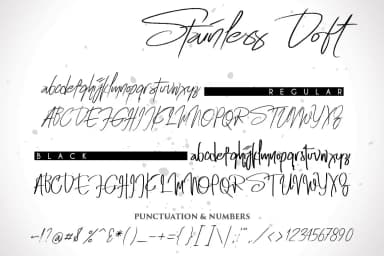 Stainless Doft
abcdefghijklmnopqrstuvwxyz REGULAR
ABCDEFGHIJKLMNOPQRSTUVWXYZ
BLACK abcdefghijklmnopqrstuvwxyz
ABCDEFGHIJKLMNOPQRSTUVWXYZ
PUNCTUATION & NUMBERS
-!?@#$%^&*()_-+={}[]\|:;"',./<>1234567890